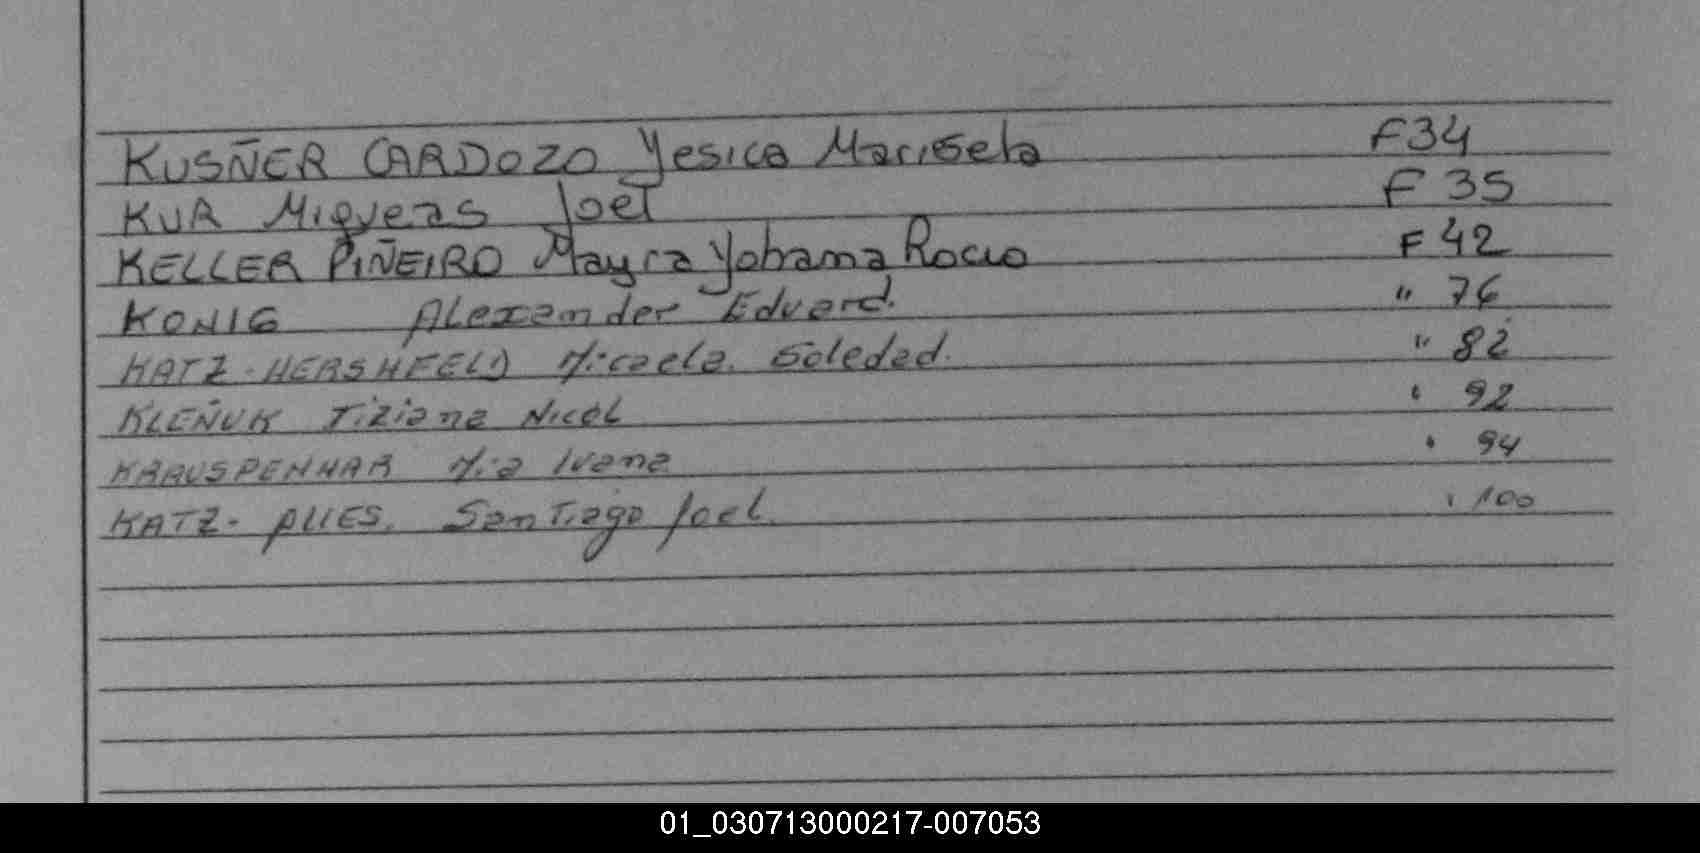 KUSÑER CARDOZO Yesica Marisela F34
KUR Miqueas Joel F 35
KELLER PIÑEIRO Mayra Yohama Rocio F 42
KONIG Alexander Eduard. " 76
KATZ-HERSHFELD Micaela. Soledad. " 82
KLEÑUK Tiziana Nicol " 92
KRAUSPENHAR Mia Ivana " 94
KATZ- Santiago Joel. " 100
01_030713000217-007053